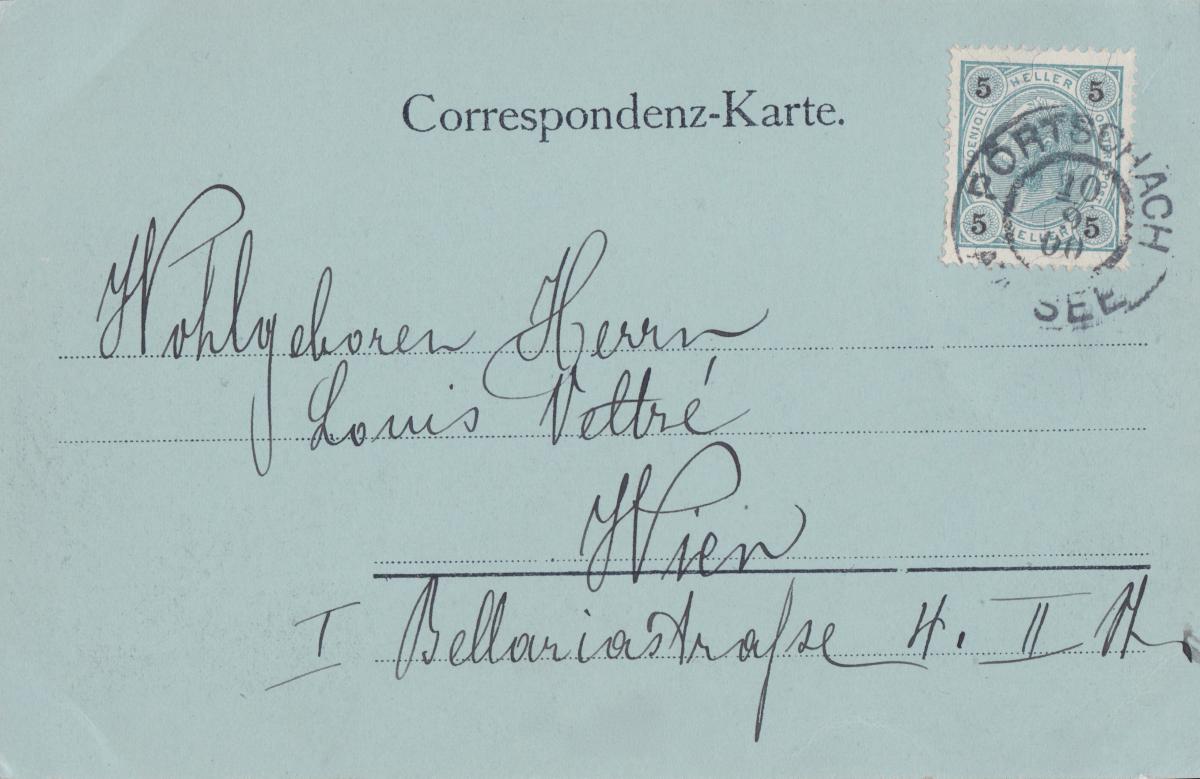 Correspondenz-Karte.
5 HELLER 5
5 HELLER 5
PÖRTSCHACH
SEE
10
9
00
Wohlgeboren Herrn
Louis Veltzé
Wien
I Bellariastraſse 4. II